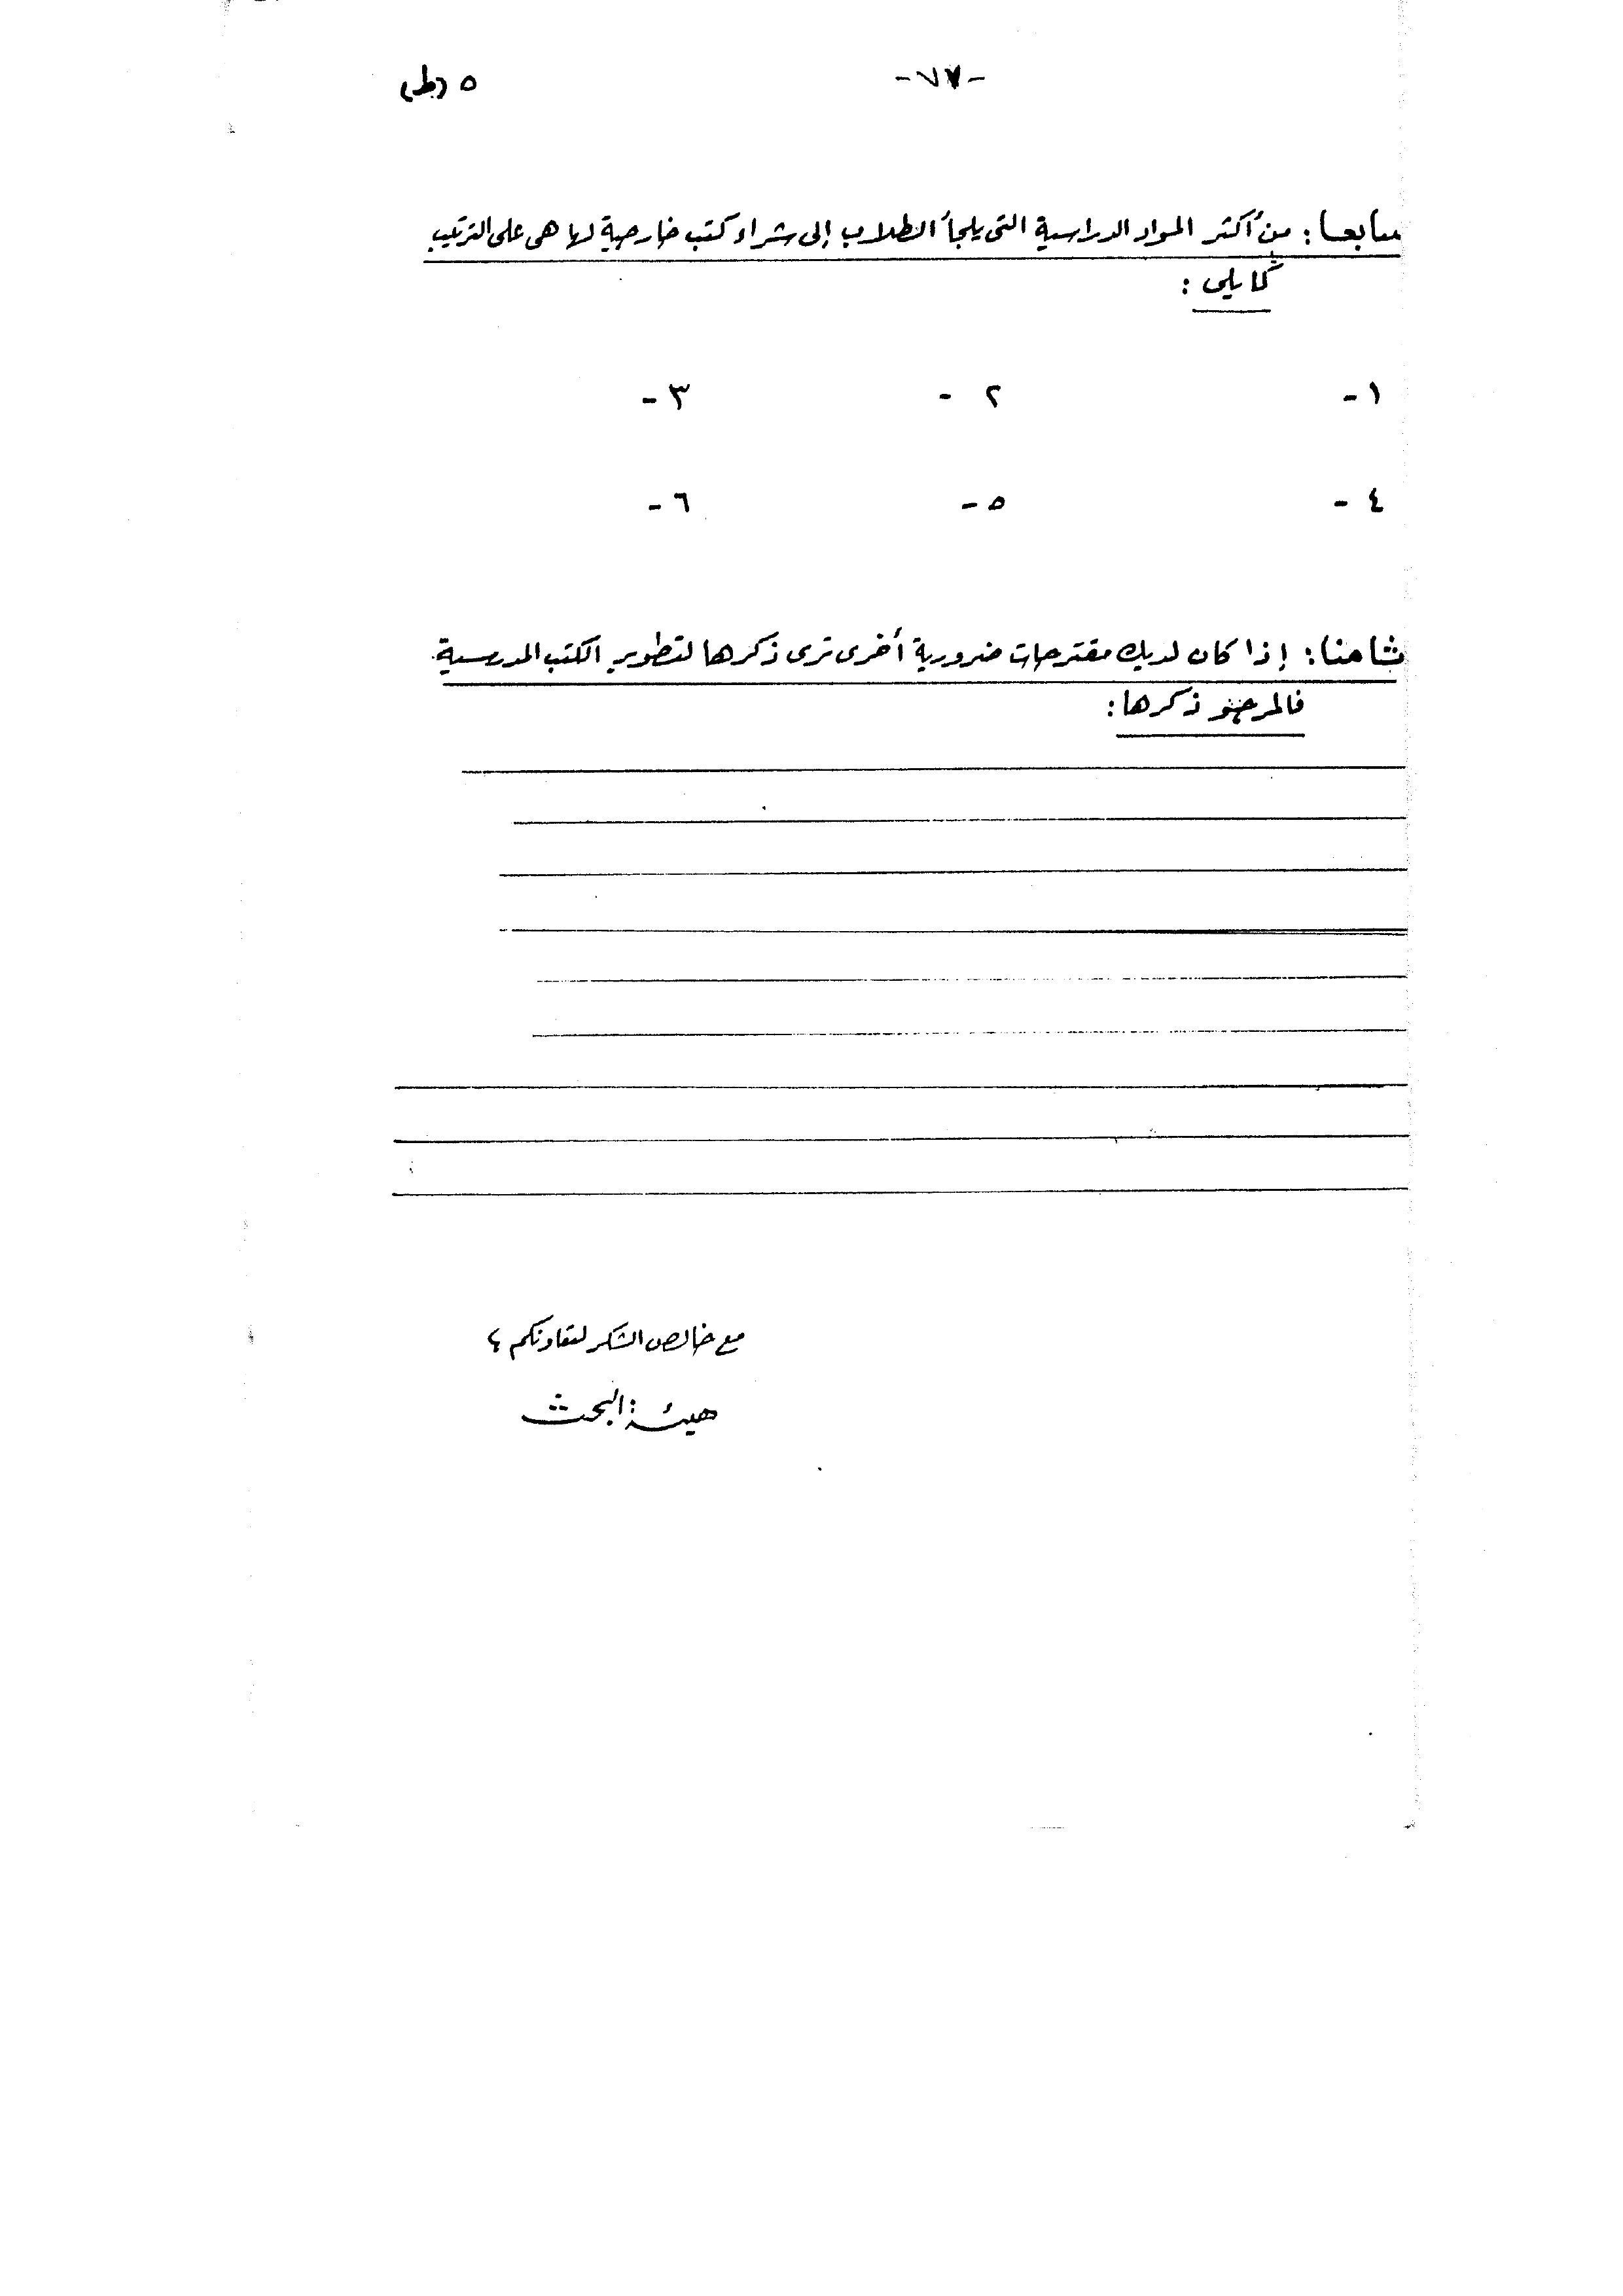 -٧٧-
٥ (ط)
سابعا: من أكثر المواد الدراسية التى يلجأ الطلاب إلى شراء كتب خارجية لها هى على الترتيب
كما يلى :
١- ٢- ٣-
٤- ٥- ٦-
ثامنا: إذا كان لديك مقترحات ضرورية أخرى ترى ذكرها لتطوير الكتب المدرسية
فالمرجو ذكرها:
مع خالص الشكر لتعاونكم ؛
هيئة البحث